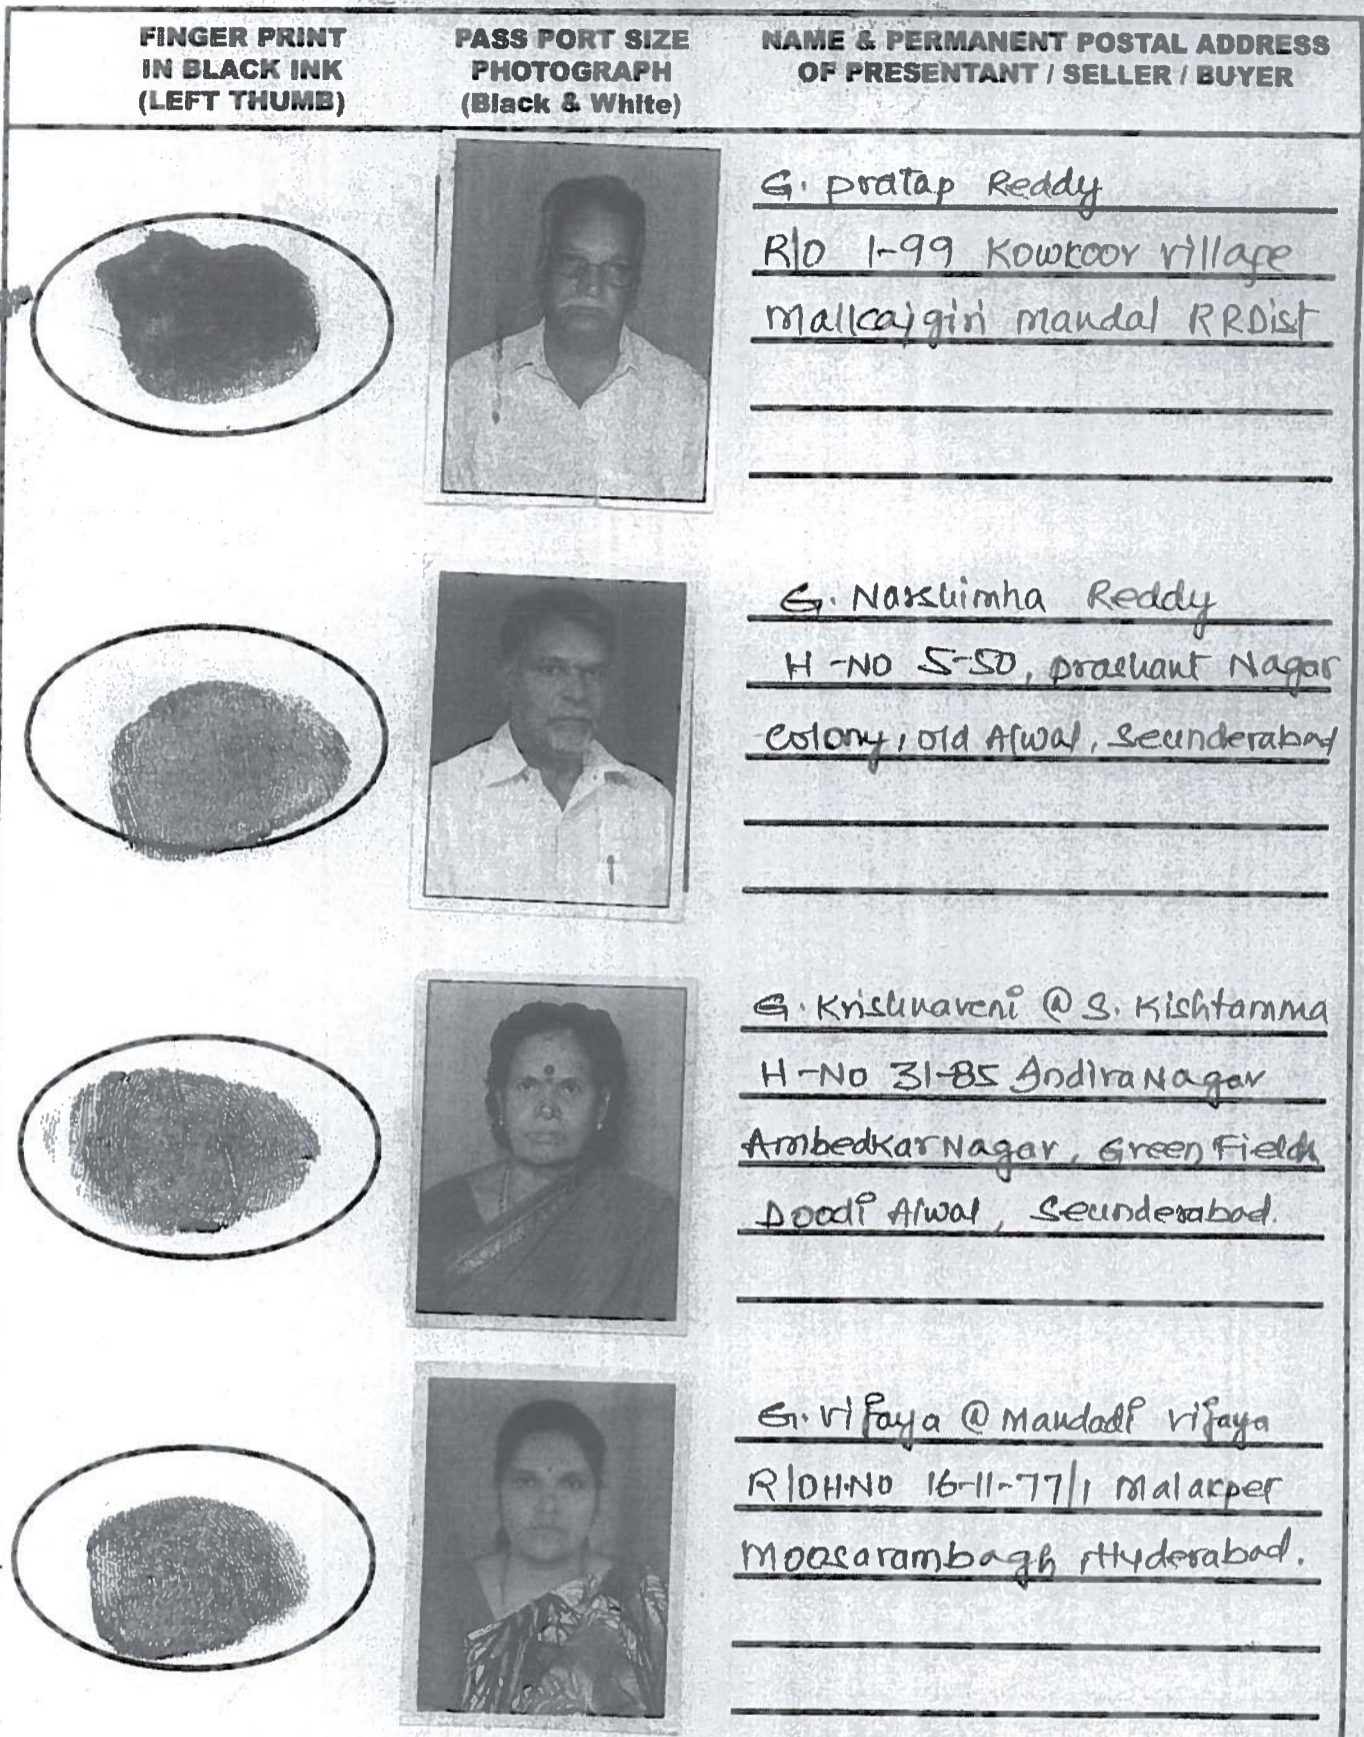 FINGER PRINT
IN BLACK INK
(LEFT THUMB)
PASS PORT SIZE
PHOTOGRAPH
(Black & White)
NAME & PERMANENT POSTAL ADDRESS
OF PRESENTANT / SELLER / BUYER
G. pratap Reddy
R/O 1-99 Kowkoor village
Malkajgiri mandal RRDist
G. Narshimha Reddy
H-NO 5-50, prashant Nagar
colony, old Alwal, Secunderabad
G. Krishnaveni @ S. Kishtamma
H-No 31-85 Indira Nagar
Ambedkar Nagar, Green Field
Doodi Alwal, Secunderabad.
G. Vijaya @ Mandadi Vijaya
R/O H.NO 16-11-77/1 Malakpet
Moosarambagh, Hyderabad.